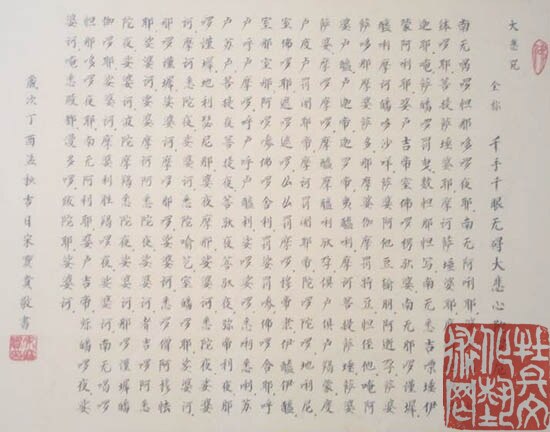 大悲咒
全称 千手千眼无碍大悲心
南无喝啰怛那哆啰夜耶,南无阿唎耶,
钵啰耶,菩提萨埵婆耶,摩诃萨埵婆耶,
迦耶,唵,萨皤啰罚曳,数怛那怛写,南无悉吉栗埵伊
蒙阿利耶,婆卢吉帝室佛啰愣驮婆,南无那啰谨墀,
醯利摩诃皤哆沙咩,萨婆阿他豆输朋,阿逝孕,萨婆
萨哆那摩婆萨哆那摩婆伽,摩罚特豆,怛侄他,唵阿
婆卢醯,卢迦帝,迦罗帝,夷醯唎,摩诃菩提萨埵,萨婆
萨婆,摩啰摩啰,摩醯摩醯唎驮孕,俱卢俱卢羯蒙,度
卢度卢罚阇耶帝,摩诃罚阇耶帝,陀啰陀啰,地利尼,
室佛啰耶,遮啰遮啰,么么罚摩啰,穆帝隶,伊醯伊醯,
室那室那,阿啰嘇佛啰舍利,罚沙罚嘇,佛啰舍耶,呼
卢呼卢摩啰,呼卢呼卢醯利,娑啰娑啰,悉唎悉唎,苏
卢苏卢,菩提夜菩提夜,菩驮夜菩驮夜,弥帝利夜,那
啰谨墀,地利瑟尼那,婆夜摩那,娑婆诃,悉陀夜,娑婆
诃,摩诃悉陀夜,娑婆诃,悉陀喻艺,室皤啰耶,娑婆诃,
那啰谨墀,娑婆诃,摩啰那啰,娑婆诃,悉啰僧阿穆佉
耶,娑婆诃,娑婆摩诃阿悉陀夜,娑婆诃,者吉啰阿悉
陀夜,娑婆诃,波陀摩羯悉陀夜,娑婆诃,那啰谨墀皤
伽啰耶,娑婆诃,摩婆利胜羯啰夜,娑婆诃,南无喝啰
怛那哆啰夜耶,南无阿利耶,婆卢吉帝,烁皤啰夜,娑
婆诃,唵悉殿都,漫多啰,跋陀耶,娑婆诃,
岁次丁酉孟秋吉日宋 贵敬书